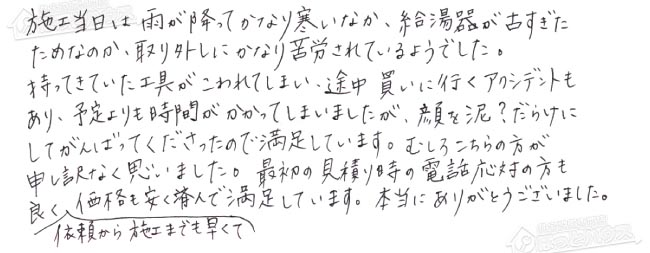 施工当日は雨が降ってかなり寒いなか、給湯器が古すぎた
ためなのか、取り外しにかなり苦労されているようでした。
持ってきていた工具がこわれてしまい、途中買いに行くアクシデントも
あり、予定よりも時間がかかってしまいましたが、顔を泥？だらけに
してがんばってくださったので満足しています。むしろこちらの方が
申し訳なく思いました。最初の見積り時の電話応対の方も
良く、価格も安く済んで満足しています。本当にありがとうございました。
依頼から施工までも早くて